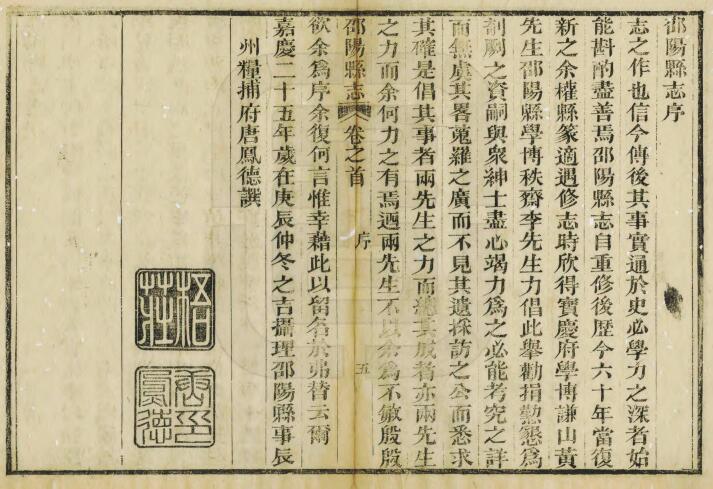 邵陽縣志序
志之作也信今傳後其事實通於史必學力之深者始
能斟酌盡善焉邵陽縣志自重修後歷今六十年當復
新之余權縣篆適遇修志時欣得寶慶府學博謙山黃
先生邵陽縣學博秩齋李先生力倡此舉勸捐勤懇爲
剞劂之資嗣與衆紳士盡心竭力爲之必能考究之詳
而無虞其畧蒐羅之廣而不見其遺採訪之公而悉求
其確是倡其事者兩先生之力而總其成者亦兩先生
之力而余何力之有焉迺兩先生不以余爲不敏殷殷
邵陽縣志 卷之首 序 五
欲余爲序余復何言惟幸藉此以留名於弗替云爾
嘉慶二十五年歲在庚辰仲冬之吉攝理邵陽縣事辰
州糧捕府唐鳳德譔
梧莊
唐印鳳德